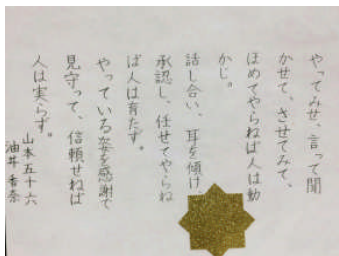 やってみせ、言って聞
かせて、させてみて、
ほめてやらねば人は動
かじ。
話し合い、耳を傾け、
承認し、任せてやらね
ば人は育たず。
やっている姿を感謝で
見守って、信頼せねば
人は実らず。
山本五十六
油井香奈